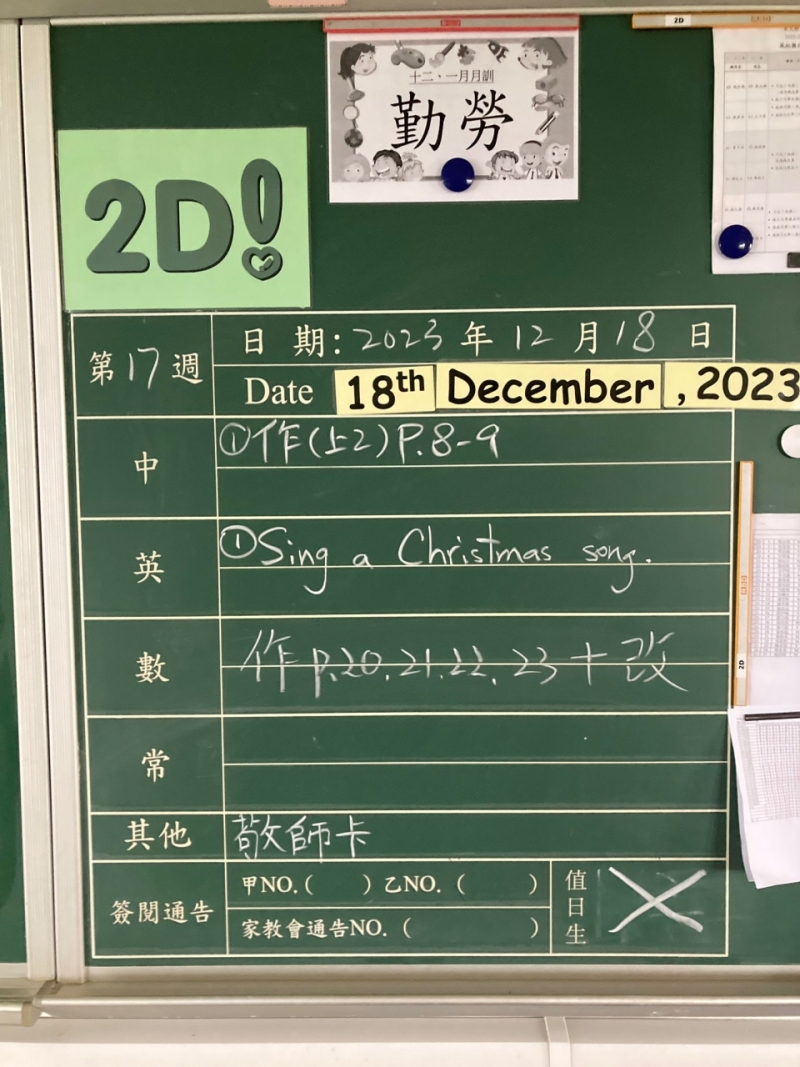 2D
十二、一月月訓
勤勞
2D!
第17週
日期: 2023年12月18日
Date 18th December, 2023
中
①作(上2)P.8-9
英
①Sing a Christmas song.
數
作P.20.21.22.23+改
常
其他
敬師卡
簽閱通告
甲NO.( ) 乙NO.( )
家教會通告NO.( )
值日生
2D